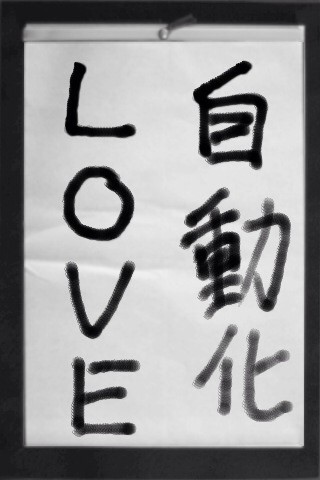 自動化
LOVE